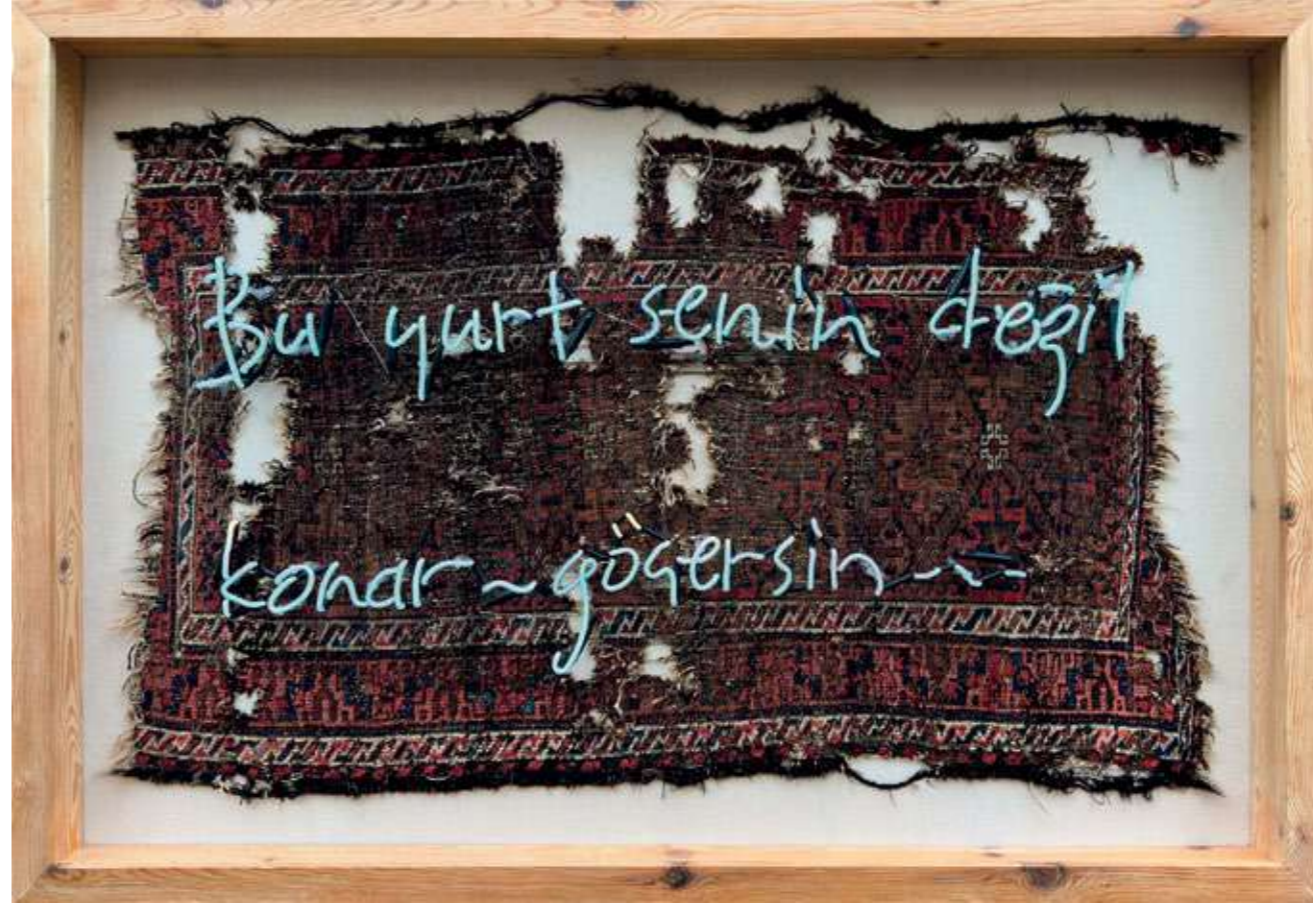 Bu yurt senin değil
konar~göçersin -~-